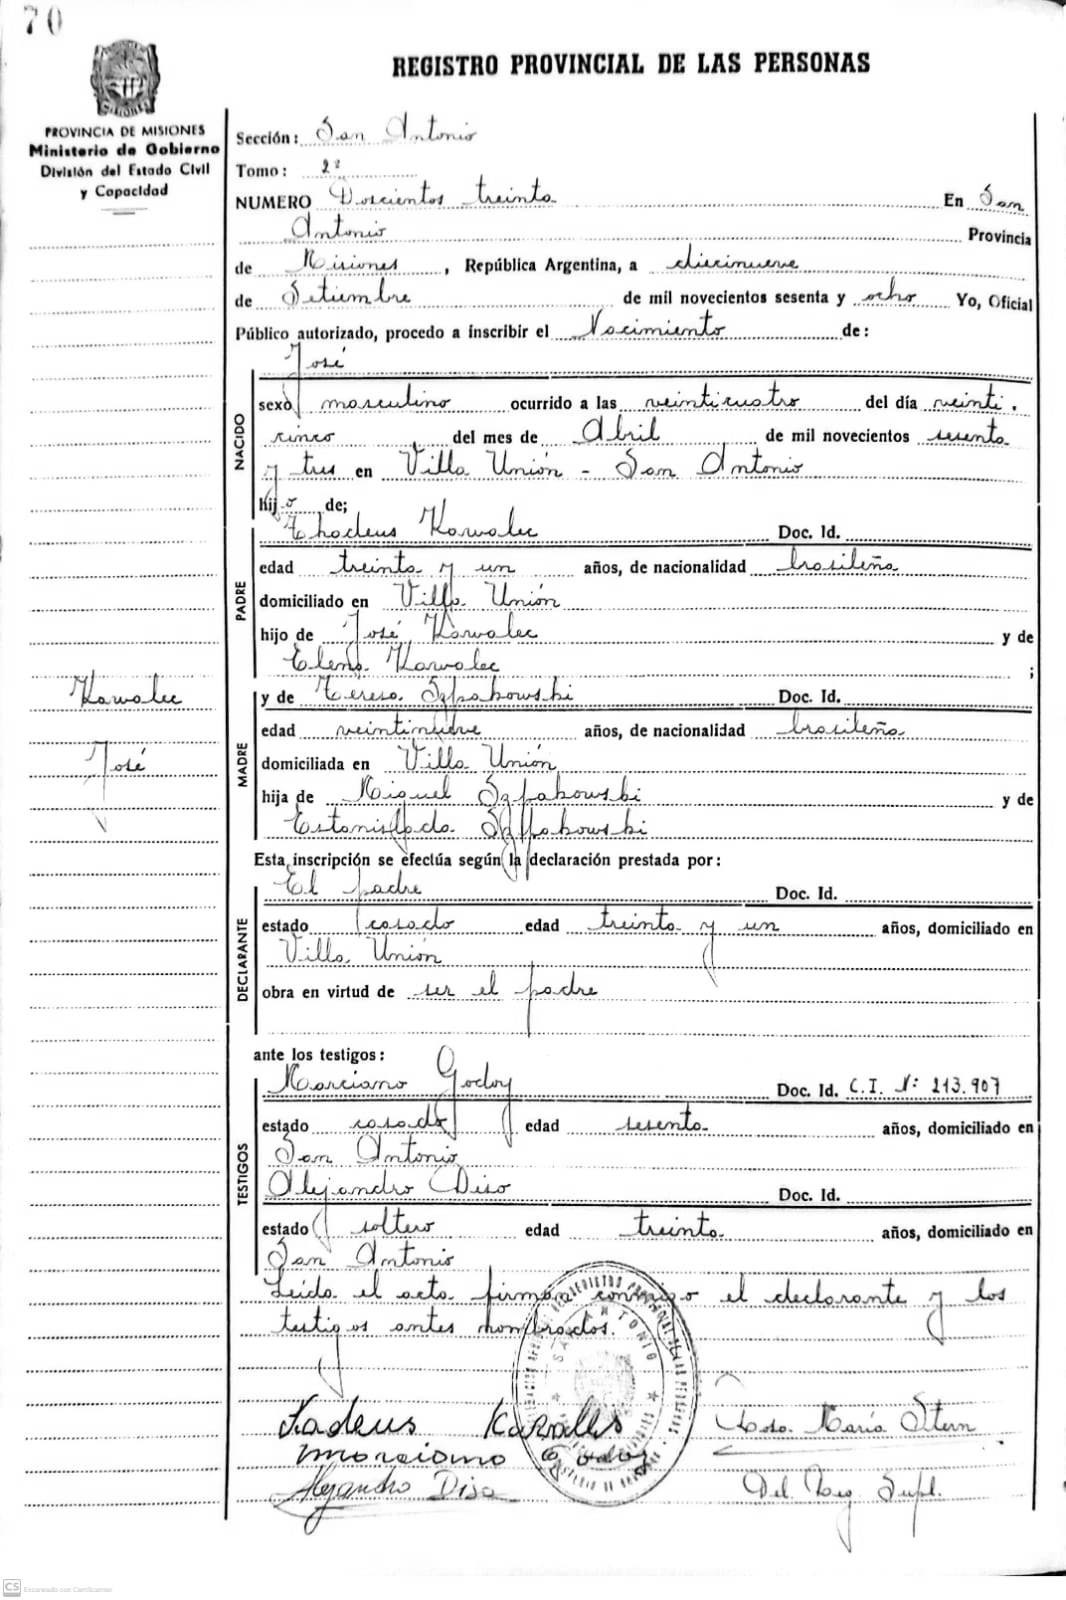 70
REGISTRO PROVINCIAL DE LAS PERSONAS
PROVINCIA DE MISIONES
Ministerio de Gobierno
División del Estado Civil
y Capacidad
Sección: San Antonio
Tomo: 2º
NUMERO Doscientos treinta En San
Antonio Provincia
de Misiones, República Argentina, a diecinueve
de Setiembre de mil novecientos sesenta y ocho Yo, Oficial
Público autorizado, procedo a inscribir el Nacimiento de:
José
NACIDO
sexo masculino ocurrido a las veinticuatro del día veinti.
cinco del mes de Abril de mil novecientos sesenta
y tres en Villa Unión - San Antonio
hijo de;
Thadeus Kawalec Doc. Id.
PADRE
edad treinta y un años, de nacionalidad brasileña
domiciliado en Villa Unión
hijo de José Kawalec y de
Elena Kawalec ;
Kawalec
José
y de Teresa Szpakowski Doc. Id.
MADRE
edad veintinueve años, de nacionalidad brasileña
domiciliada en Villa Unión
hija de Miguel Szpakowski y de
Estanislada Szpakowski
Esta inscripción se efectúa según la declaración prestada por:
El padre Doc. Id.
DECLARANTE
estado casado edad treinta y un años, domiciliado en
Villa Unión
obra en virtud de ser el padre
ante los testigos:
Marciano Godoy Doc. Id. C.I. Nº 213.907
TESTIGOS
estado casado edad sesenta años, domiciliado en
San Antonio
Alejandro Diso Doc. Id.
estado soltero edad treinta años, domiciliado en
San Antonio
Leída el acta firman conmigo el declarante y los
testigos antes nombrados.
SAN ANTONIO
Tadeus
Rosa María Stern
Marciano Godoy
Alejandro Diso
Del. Reg. Supl.
CS Escaneado con CamScanner